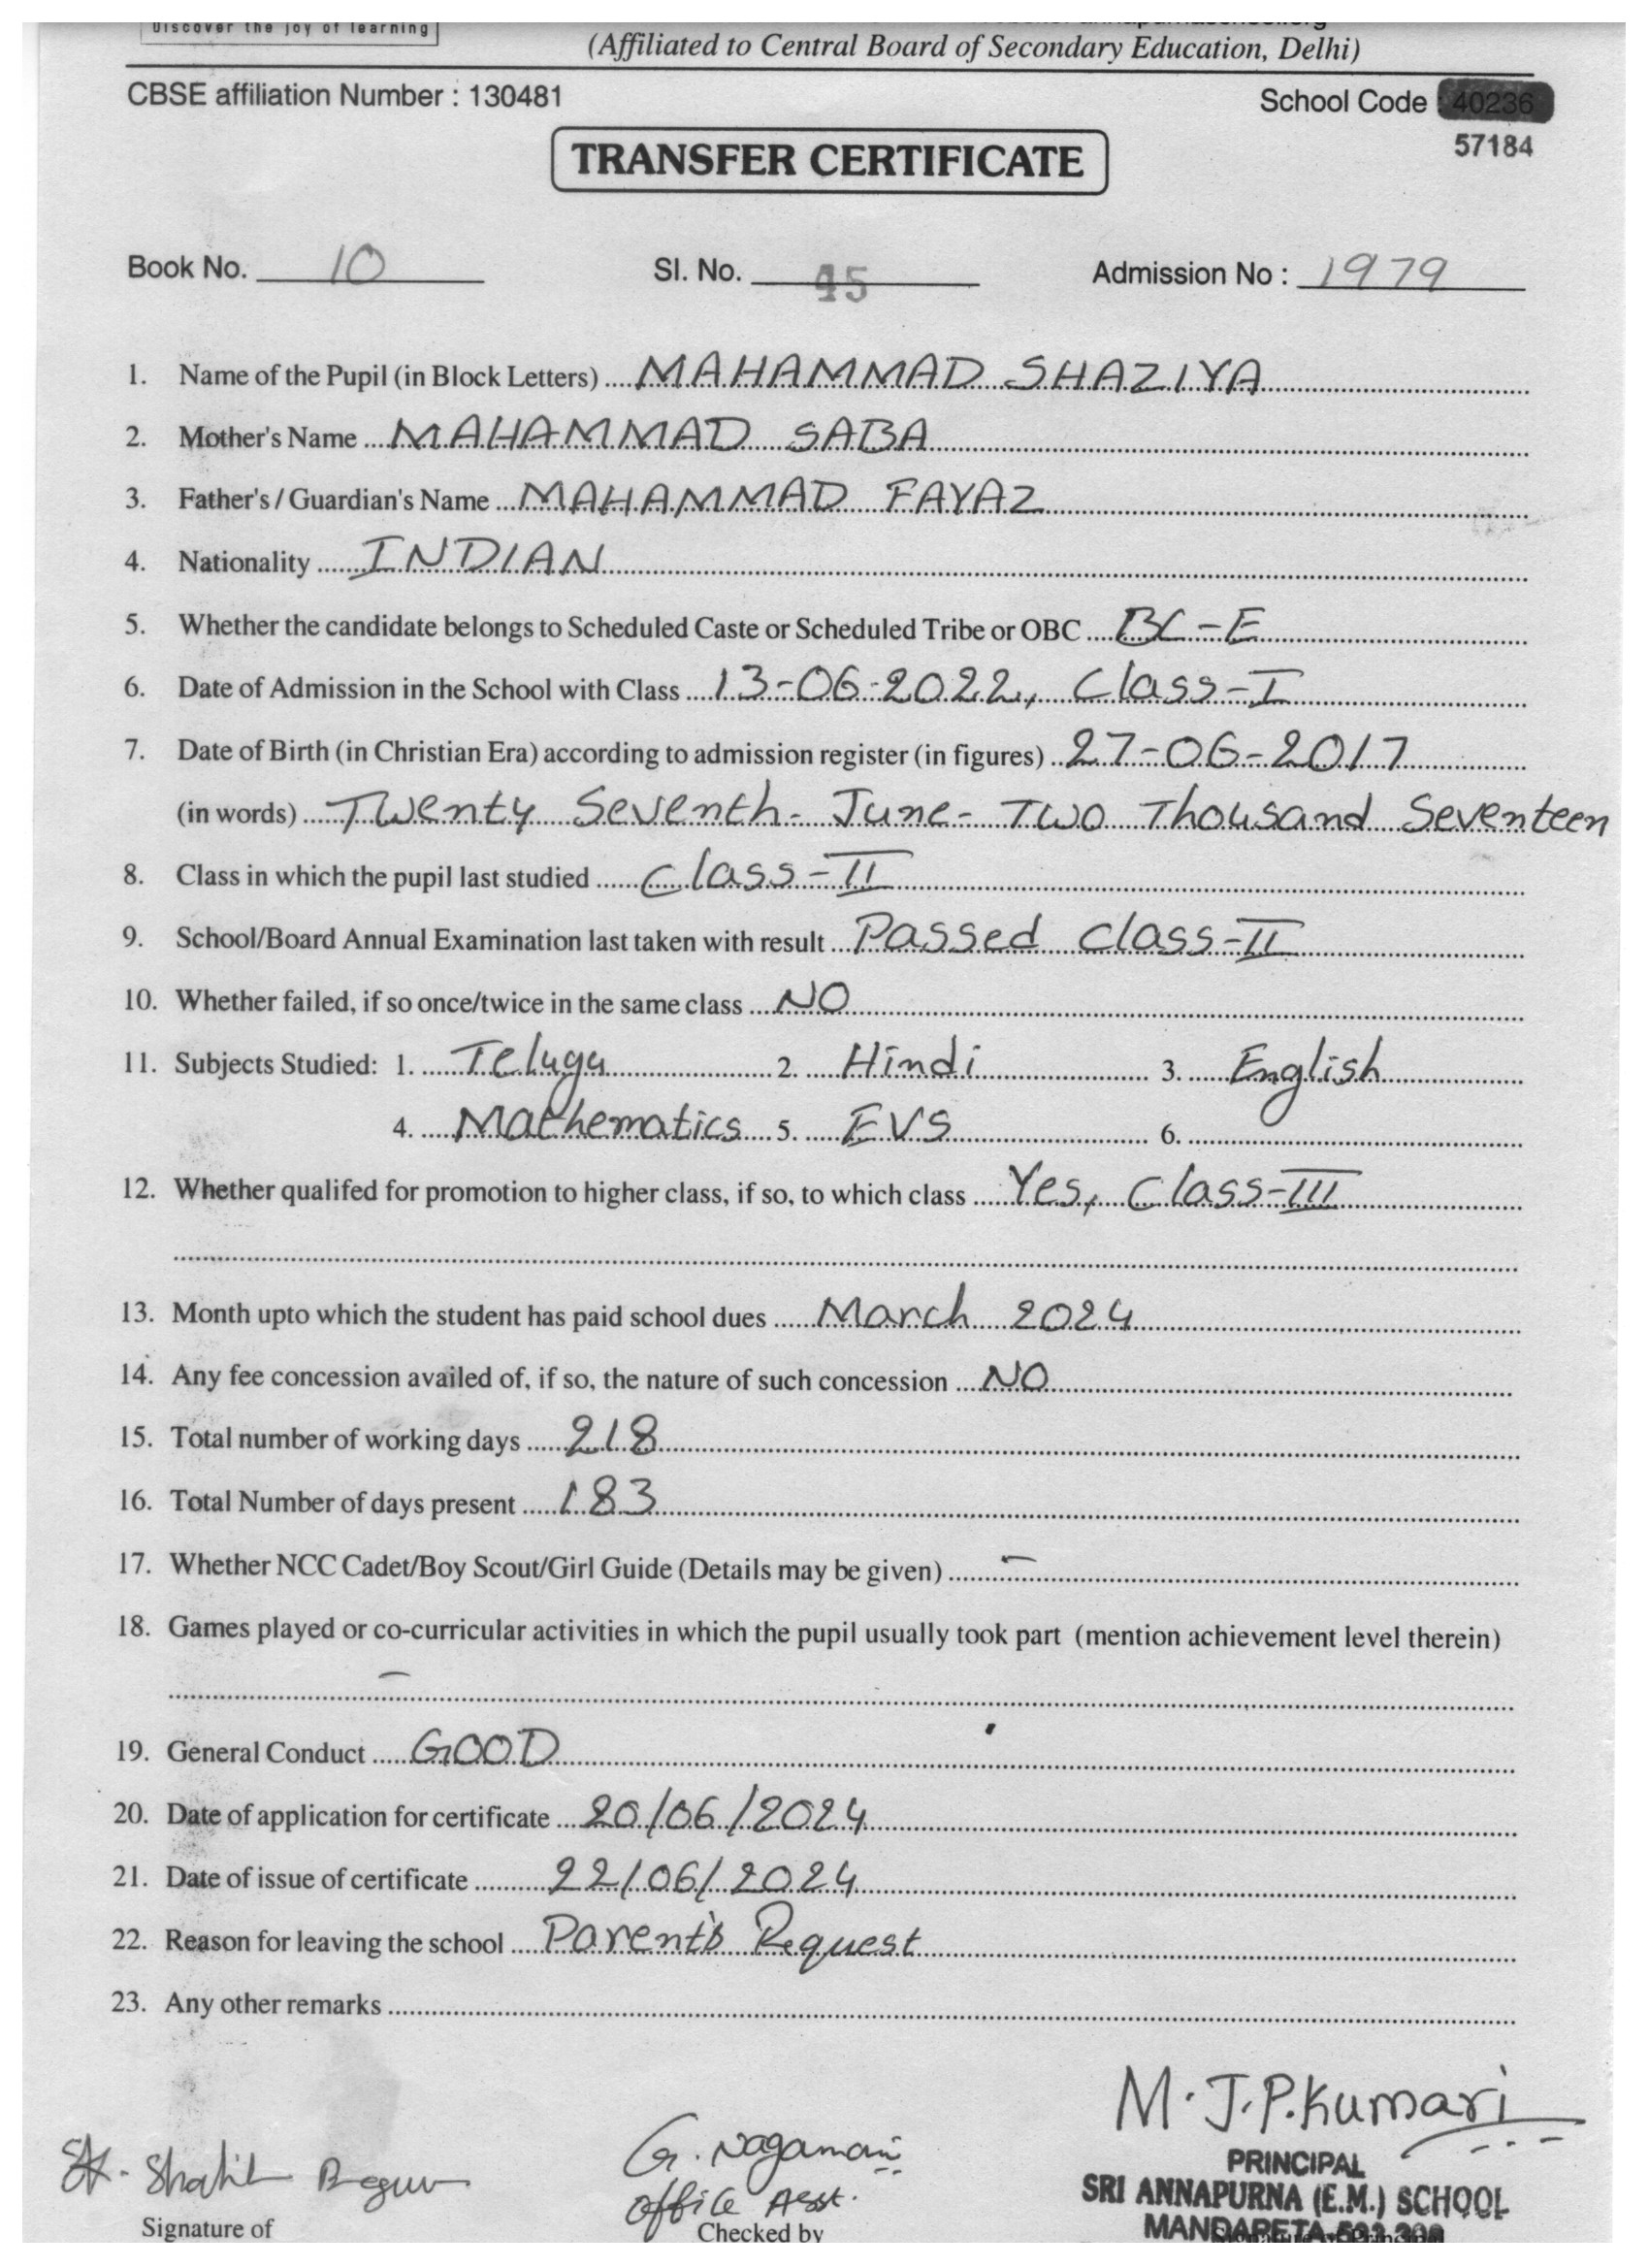 Discover the joy of learning
(Affiliated to Central Board of Secondary Education, Delhi)
CBSE affiliation Number : 130481 School Code : 40236
57184
TRANSFER CERTIFICATE
Book No. 10 Sl. No. 45 Admission No : 1979
1. Name of the Pupil (in Block Letters) MAHAMMAD SHAZIYA
2. Mother's Name MAHAMMAD SABA
3. Father's / Guardian's Name MAHAMMAD FAYAZ
4. Nationality INDIAN
5. Whether the candidate belongs to Scheduled Caste or Scheduled Tribe or OBC BC-E
6. Date of Admission in the School with Class 13-06-2022, Class-I
7. Date of Birth (in Christian Era) according to admission register (in figures) 27-06-2017
(in words) Twenty Seventh- June- Two Thousand Seventeen
8. Class in which the pupil last studied Class-II
9. School/Board Annual Examination last taken with result Passed Class-II
10. Whether failed, if so once/twice in the same class NO
11. Subjects Studied: 1. Telugu 2. Hindi 3. English
4. Mathematics 5. EVS 6.
12. Whether qualifed for promotion to higher class, if so, to which class Yes, Class-III
13. Month upto which the student has paid school dues March 2024
14. Any fee concession availed of, if so, the nature of such concession NO
15. Total number of working days 218
16. Total Number of days present 183
17. Whether NCC Cadet/Boy Scout/Girl Guide (Details may be given) –
18. Games played or co-curricular activities in which the pupil usually took part (mention achievement level therein)
–
19. General Conduct GOOD
20. Date of application for certificate 20/06/2024
21. Date of issue of certificate 22/06/2024
22. Reason for leaving the school Parent's Request
23. Any other remarks
M.J.P.Kumari
G. Nagamani
PRINCIPAL
SRI ANNAPURNA (E.M.) SCHOOL
Office Asst.
Signature of Checked by MANDAPETA